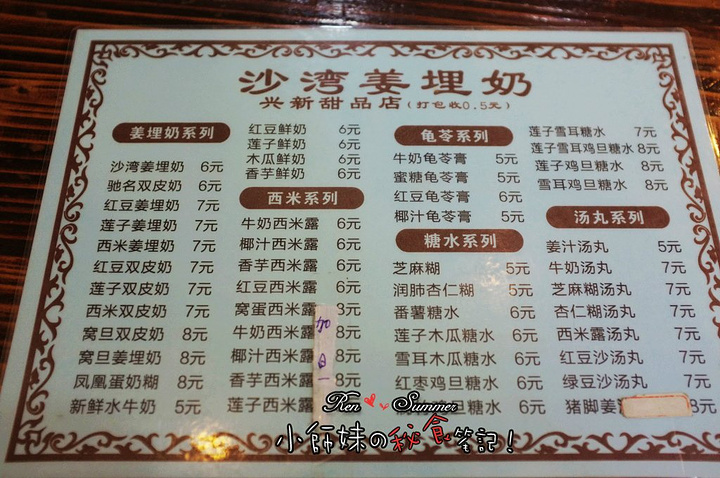 沙湾姜埋奶
兴新甜品店(打包收0.5元)
姜埋奶系列
沙湾姜埋奶 6元
驰名双皮奶 6元
红豆姜埋奶 7元
莲子姜埋奶 7元
西米姜埋奶 7元
红豆双皮奶 7元
莲子双皮奶 7元
西米双皮奶 7元
窝旦双皮奶 8元
窝旦姜埋奶 8元
凤凰蛋奶糊 8元
新鲜水牛奶 5元
红豆鲜奶 6元
莲子鲜奶 6元
木瓜鲜奶 6元
香芋鲜奶 6元
西米系列
牛奶西米露 6元
椰汁西米露 6元
香芋西米露 6元
红豆西米露 6元
窝蛋西米露 8元
牛奶西米露 8元
椰汁西米露 8元
香芋西米露 8元
莲子西米露 8元
加
旦
龟苓系列
牛奶龟苓膏 5元
蜜糖龟苓膏 5元
红豆龟苓膏 6元
椰汁龟苓膏 5元
糖水系列
芝麻糊 5元
润肺杏仁糊 5元
番薯糖水 6元
莲子木瓜糖水 6元
雪耳木瓜糖水 6元
红枣鸡旦糖水 6元
鸡旦糖水 6元
莲子雪耳糖水 7元
莲子雪耳鸡旦糖水 8元
莲子鸡旦糖水 8元
雪耳鸡旦糖水 8元
汤丸系列
姜汁汤丸 5元
牛奶汤丸 7元
芝麻糊汤丸 7元
杏仁糊汤丸 7元
西米露汤丸 7元
红豆沙汤丸 7元
绿豆沙汤丸 7元
猪脚姜 8元
Ren Summer
小師妹の秘食笔記!